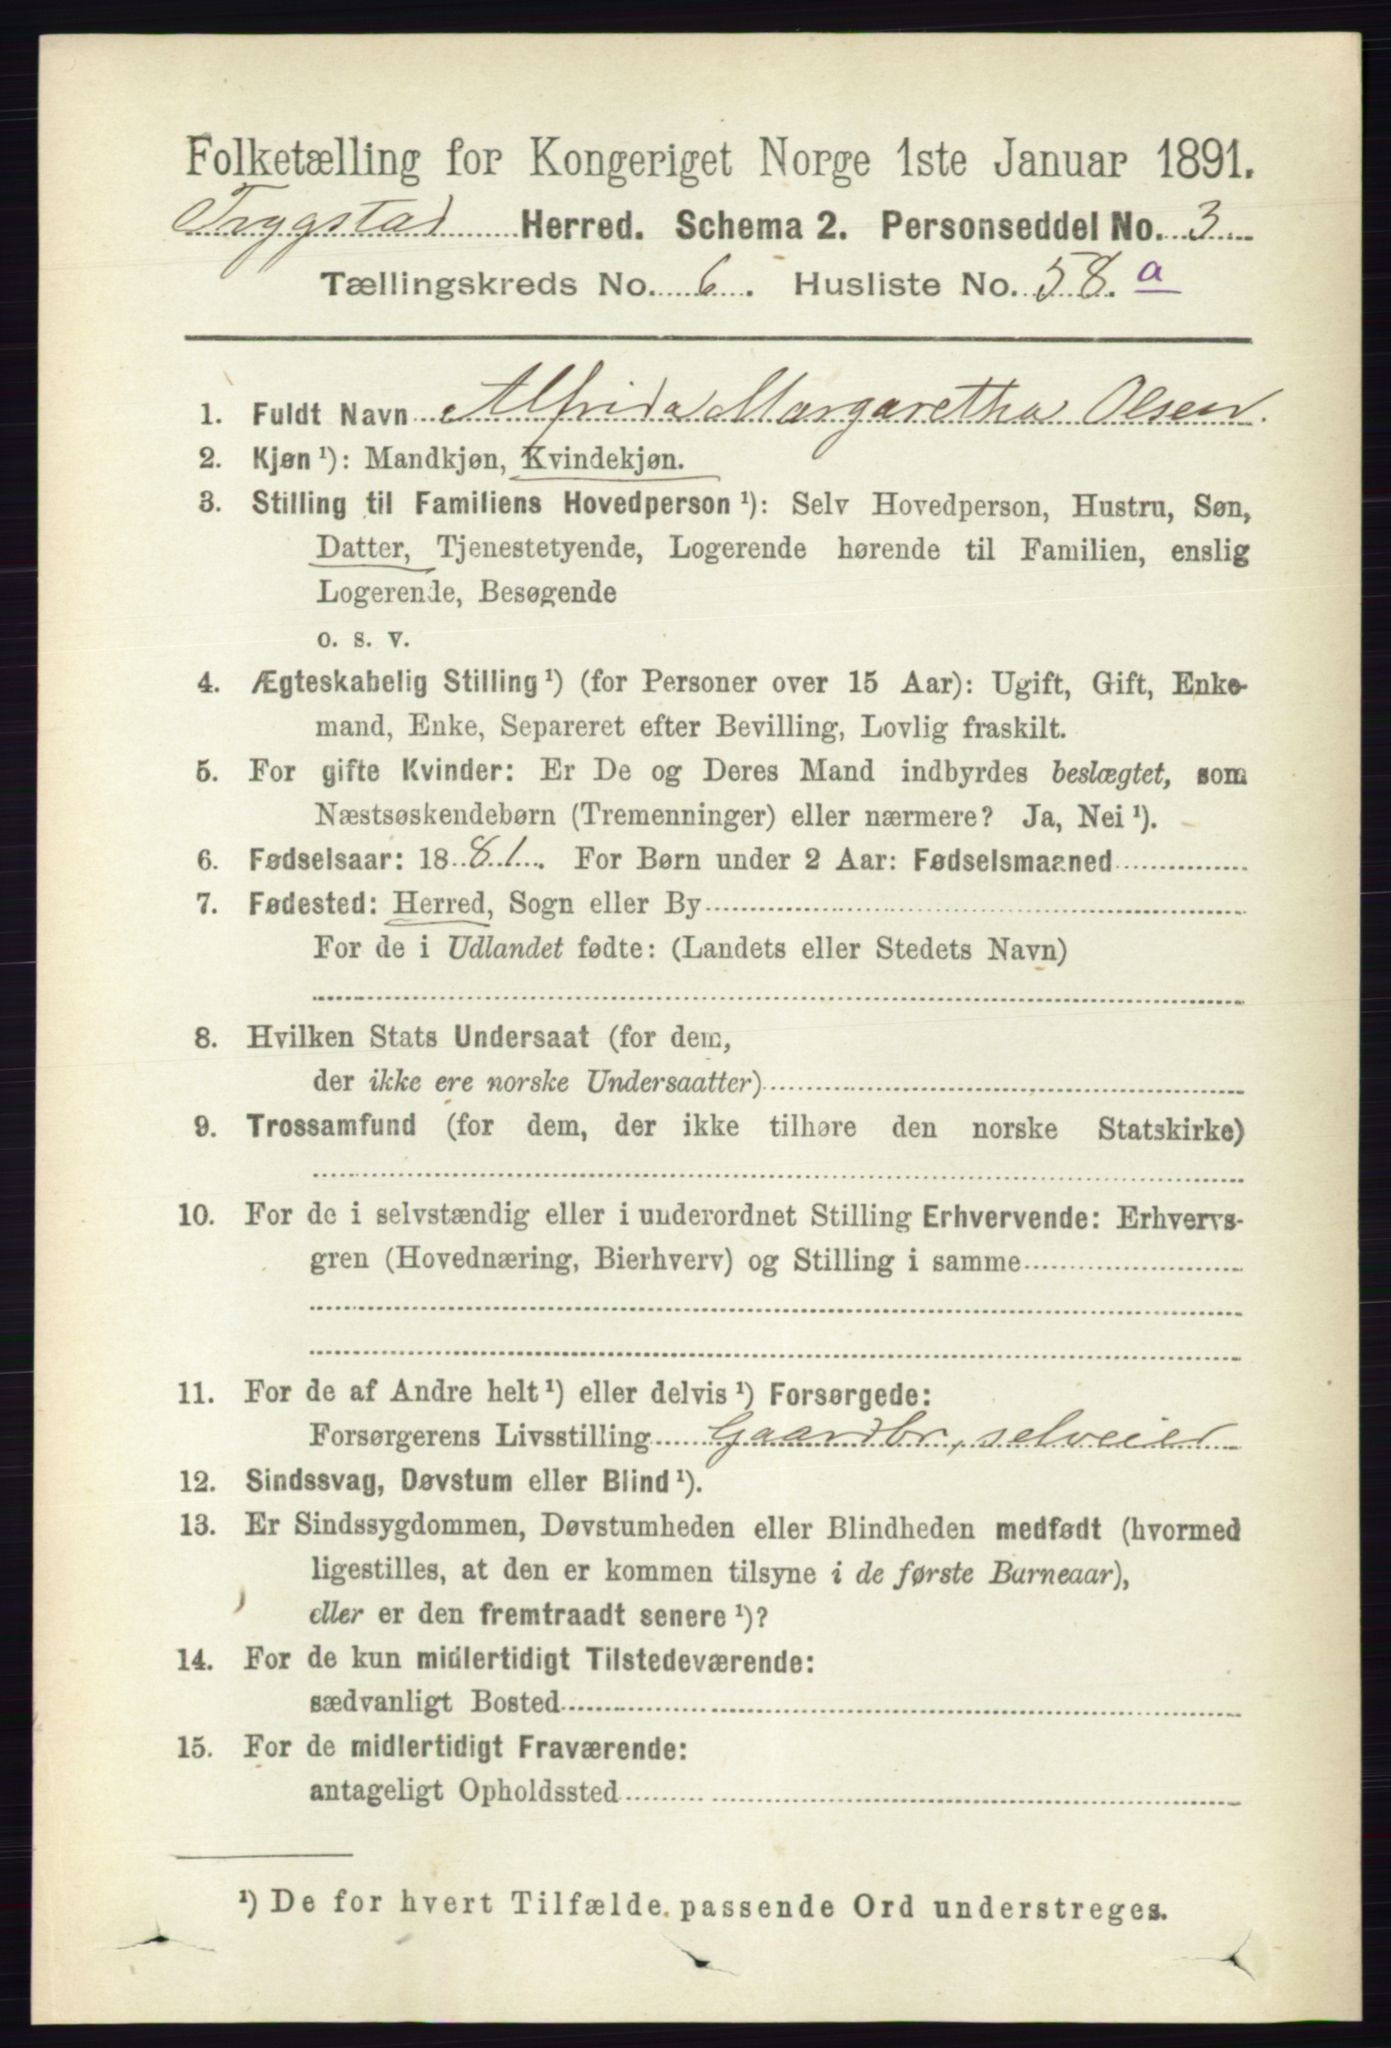 Folketælling for Kongeriget Norge 1ste Januar 1891.
Trygstad Herred. Schema 2. Personseddel No. 3
Tællingskreds No. 6. Husliste No. 58. a
1. Fuldt Navn Alfrida Margaretha Olsen.
2. Kjøn ¹): Mandkjøn, Kvindekjøn.
3. Stilling til Familiens Hovedperson ¹): Selv Hovedperson, Hustru, Søn,
Datter, Tjenestetyende, Logerende hørende til Familien, enslig
Logerende, Besøgende
o. s. v.
4. Ægteskabelig Stilling ¹) (for Personer over 15 Aar): Ugift, Gift, Enke-
mand, Enke, Separeret efter Bevilling, Lovlig fraskilt.
5. For gifte Kvinder: Er De og Deres Mand indbyrdes beslægtet, som
Næstsøskendebørn (Tremenninger) eller nærmere? Ja, Nei ¹).
6. Fødselsaar: 1881. For Børn under 2 Aar: Fødselsmaaned
7. Fødested: Herred, Sogn eller By
For de i Udlandet fødte: (Landets eller Stedets Navn)
8. Hvilken Stats Undersaat (for dem,
der ikke ere norske Undersaatter)
9. Trossamfund (for dem, der ikke tilhøre den norske Statskirke)
10. For de i selvstændig eller i underordnet Stilling Erhvervende: Erhvervs-
gren (Hovednæring, Bierhverv) og Stilling i samme
11. For de af Andre helt ¹) eller delvis ¹) Forsørgede:
Forsørgerens Livsstilling Gaardbr, selveier
12. Sindssvag, Døvstum eller Blind ¹).
13. Er Sindssygdommen, Døvstumheden eller Blindheden medfødt (hvormed
ligestilles, at den er kommen tilsyne i de første Barneaar),
eller er den fremtraadt senere ¹)?
14. For de kun midlertidigt Tilstedeværende:
sædvanligt Bosted
15. For de midlertidigt Fraværende:
antageligt Opholdssted
¹) De for hvert Tilfælde passende Ord understreges.